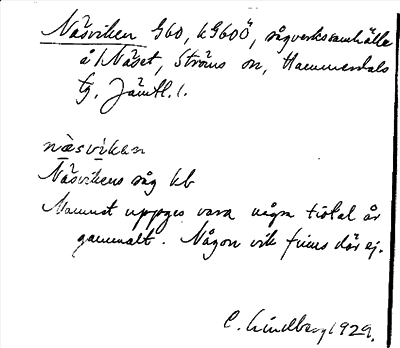 Näsviken G60, kG60Ö, sågverkssamhälle
å Näset, Ströms sn, Hammerdals
tg. Jämtl. l.
näsvikan
Näsvikens såg kb
Namnet uppges vara några tiotal år
gammalt. Någon vik finns där ej.
C. Lindberg 1929.